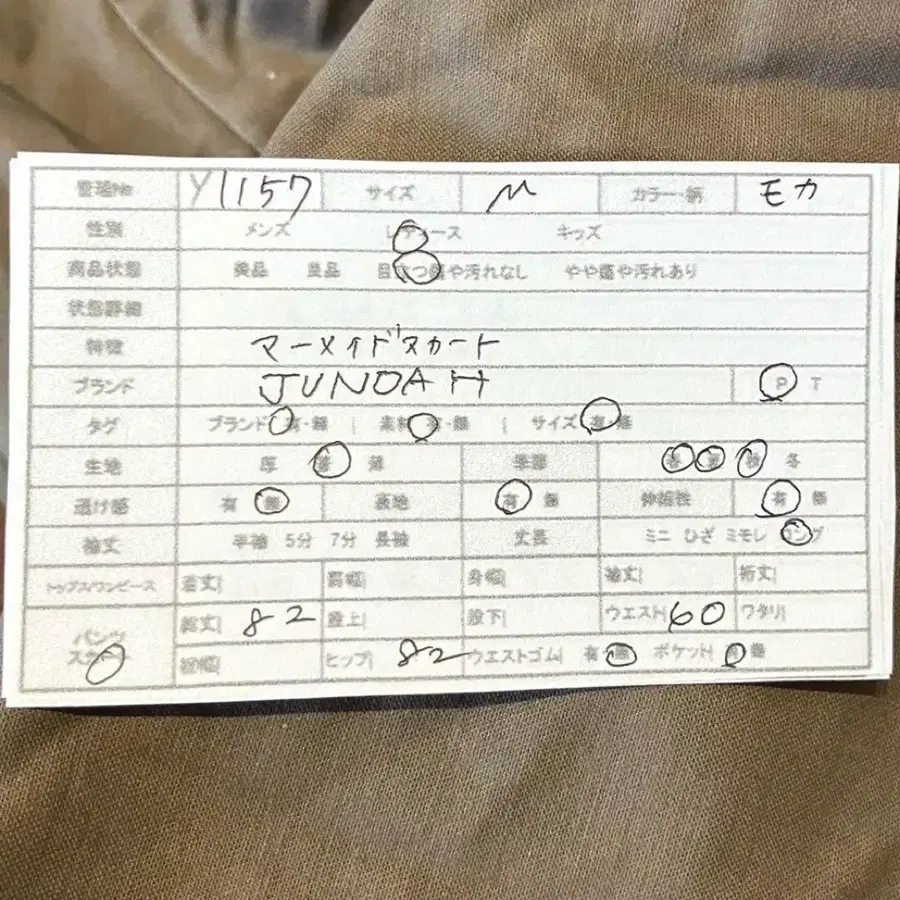 管理No Y1157 サイズ M カラー・柄 モカ
性別 メンズ レディース キッズ
商品状態 美品 良品 目立つ傷や汚れなし やや傷や汚れあり
状態詳細
特徴 マーメイドスカート
ブランド JUNOAH P T
タグ ブランド 有・無 | 素材 有・無 | サイズ 有・無
生地 厚 普 薄 季節 春 夏 秋 冬
透け感 有 無 裏地 有 無 伸縮性 有 無
袖丈 半袖 5分 7分 長袖 丈長 ミニ ひざ ミモレ ロング
トップス/ワンピース 着丈| 肩幅| 身幅| 袖丈| 裄丈|
パンツ スカート 総丈| 82 股上| 股下| ウエスト| 60 ワタリ|
裾幅| ヒップ| 82 ウエストゴム| 有 無 ポケット| 有 無